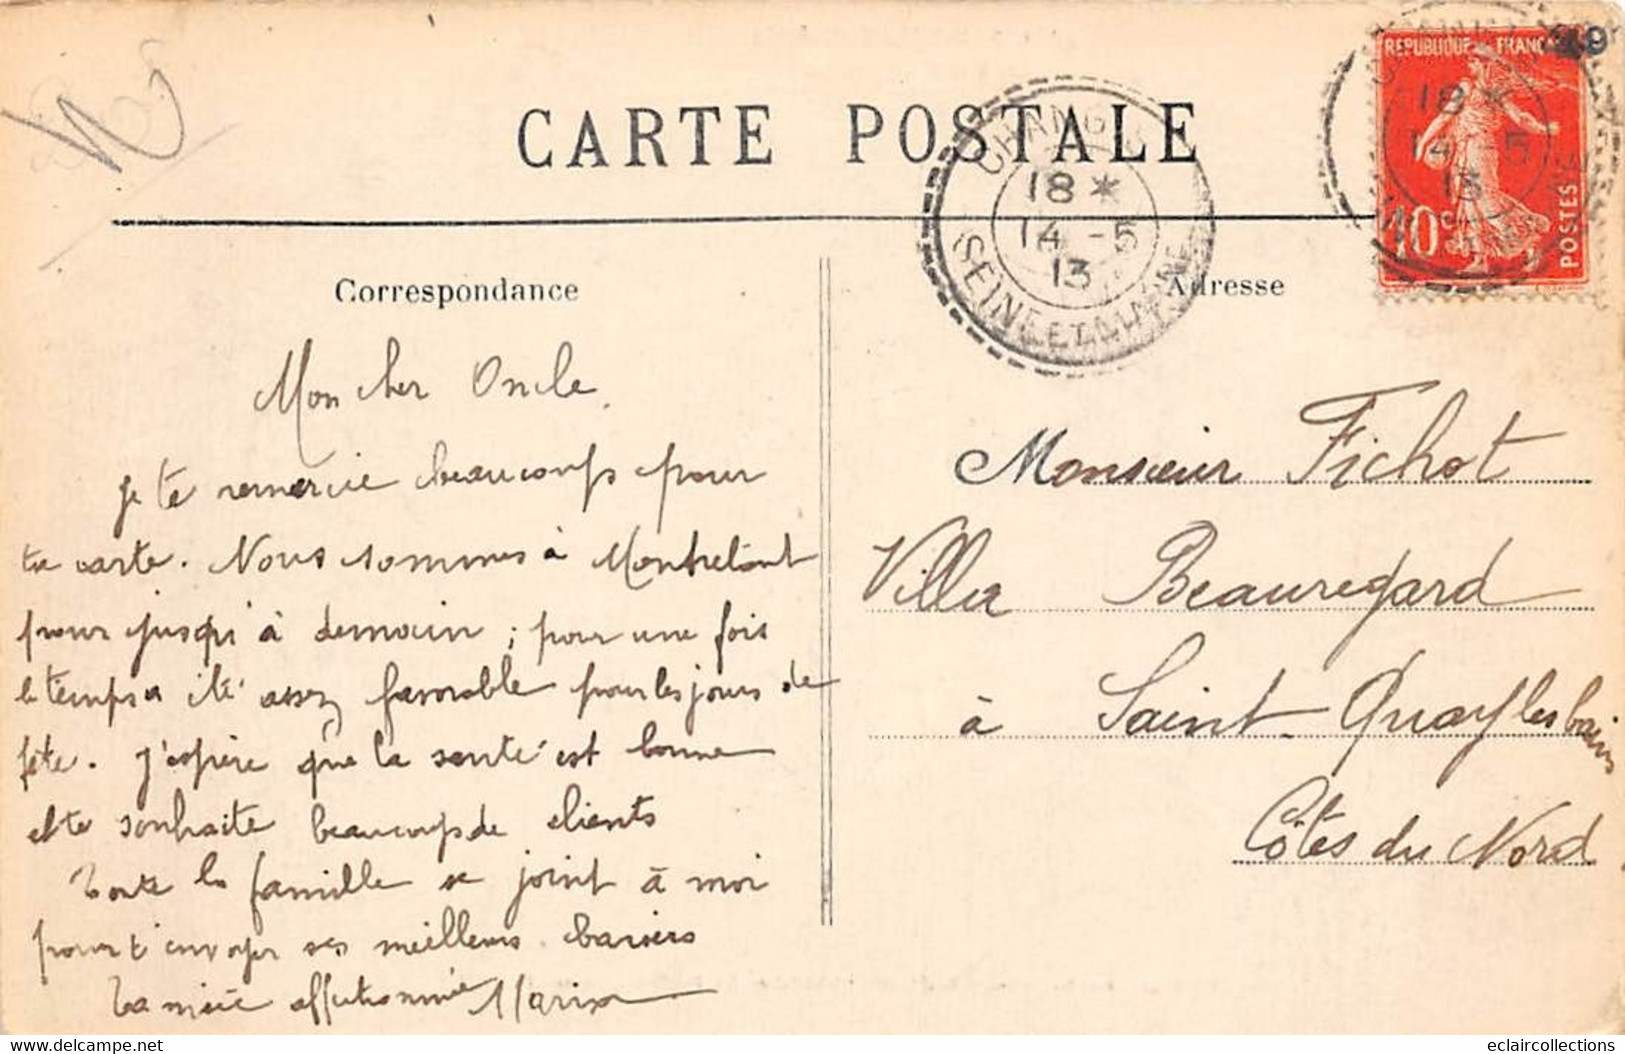 CARTE POSTALE
Correspondance
Adresse
REPUBLIQUE FRANÇAISE
10c
POSTES
18 *
14 - 5
13
SEINE ET MARNE
18 *
14 - 5
13
Mon cher Oncle,
je te remercie beaucoup pour
ta carte. Nous sommes à
pour jusqu'à demain ; pour une fois
le temps a été assez favorable pour les jours de
fête. J'espère que la santé est bonne
et te souhaite beaucoup de clients
Toute la famille se joint à moi
pour t'envoyer ses meilleurs baisers
Ta nièce affectionnée
Monsieur Fichot
Villa Beauregard
à Saint-Quay les bains
Côtes du Nord
delcampe.net
eclaircollections